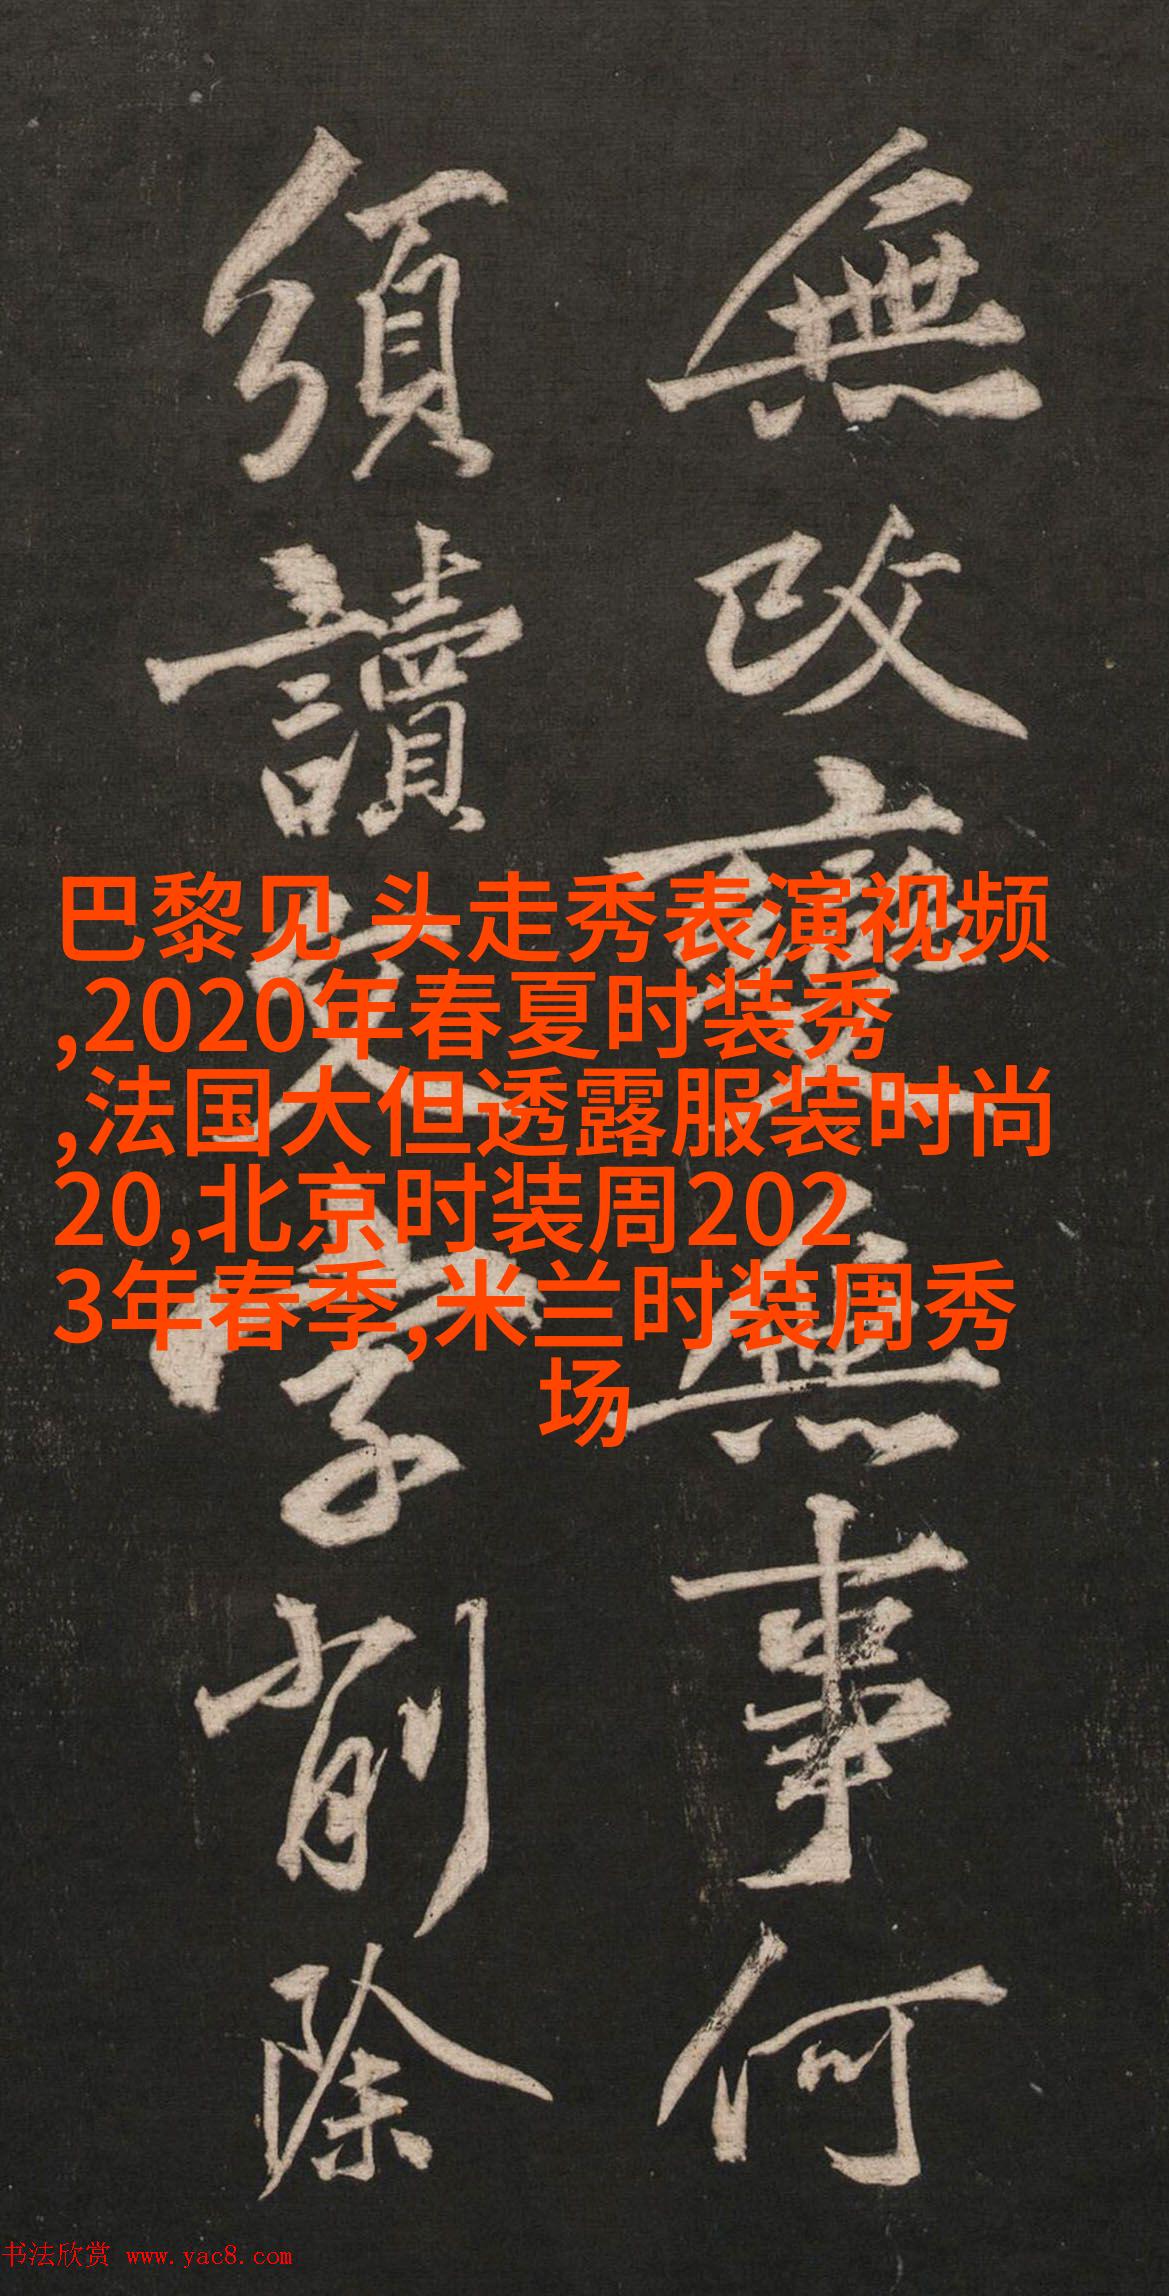 無改變無事何
須讀字削除
巴黎见 头走秀表演视频
,2020年春夏时装秀
,法国大但透露服装时尚
20,北京时装周202
3年春季,米兰时装周秀
场
书法欣赏 www.yac8.com